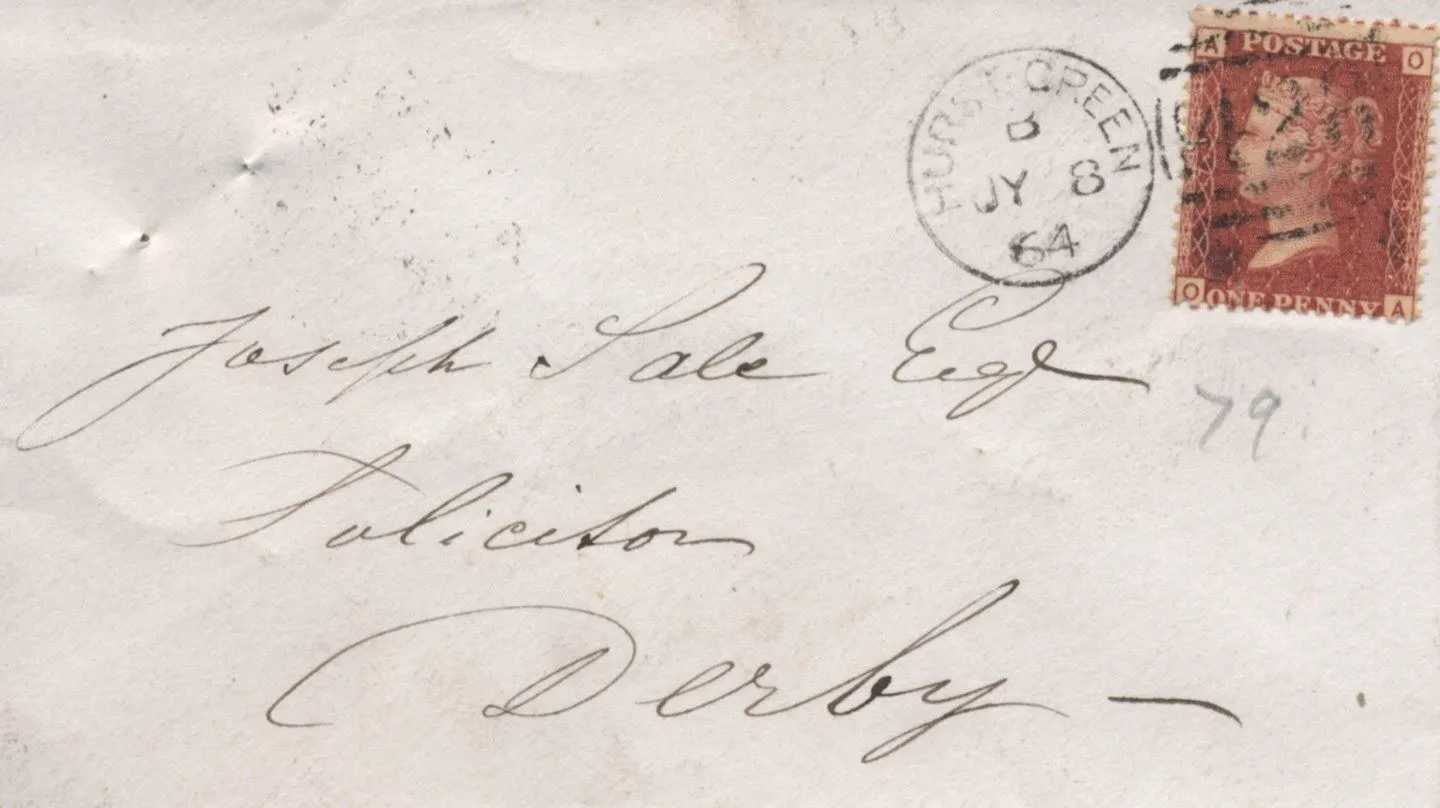 A POSTAGE O
HURST-GREEN
B
JY 8
64
O ONE PENNY A
Joseph Sale Esqr
79
Solicitor
Derby —